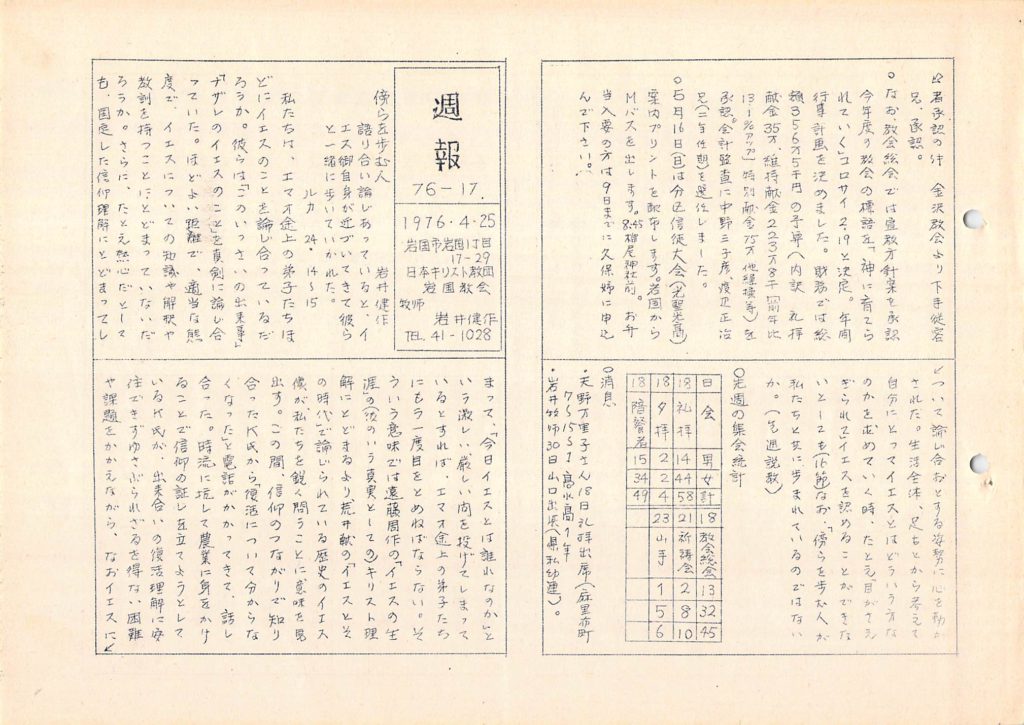 週報
76-17.
1976・4・25
岩国市岩国1丁目
17-29
日本キリスト教団
岩国教会
牧師
岩井健作
TEL. 41-1028
傍らを歩む人
岩井健作
語り合い論じあっていると、イ
エス御自身が近づいてきて彼ら
と一緒に歩いていかれた。
ルカ 24・14〜15
私たちは、エマオ途上の弟子たちほ
どにイエスのことを論じ合っているだ
ろうか。彼らは「このいっさいの出来事」
「ナザレのイエスのこと」を真剣に論じ合
っていた。ほどよい距離で、適当な態
度で、イエスについての知識や解釈や
教訓を持つことにとどまっていないだ
ろうか。さらに、たとえ熱心だとして
も、固定した信仰理解にとどまってし
まって、「今日イエスとは誰れなのか」と
いう激しい厳しい問を投げてしまって
いるとすれば、エマオ途上の弟子たち
にもう一度目をとめねばならない。そ
ういう意味では遠藤周作の「イエスの生
涯」の(彼のいう真実としての)キリスト理
解にとどまるより、荒井献の「イエスとそ
の時代」で論じられている歴史のイエス
像が私たちを鋭く問うことに意味を見
出す。この間、信仰のつながりで知り
合ったK氏から「復活について分からな
くなった」と電話がかかってきて、話し
合った。時流に抗して農業に身をかけ
ることで信仰の証しを立てようとして
いるK氏が、出来合いの復活理解に安
住できずゆさぶられざるを得ない困難
や課題をかかえながら、なおイエスに↙
↙ついて論じ合おうとする姿勢に心を動か
された。生活全体、足もとから考えて
自分にとってイエスとはどういう方な
のかを求めていく時、たとえ「目がさえ
ぎられて」イエスを認めることができな
いとしても(16節)なお、「傍らを歩む人」が
私たちと共に歩まれているのではない
か。(先週説教)
○先週の集会統計
日 会 男 女 計
18 礼拝 14 44 58
18 夕拝 2 2 4
18 陪餐者 15 34 49
18 教会総会 13 32 45
21 祈祷会 2 8 10
23 山手 1 5 6
○消息
・天野万里子さん 18日礼拝出席(麻里布町
7-5-15-1 高水高1年
・岩井牧師30日山口出張(県私幼連)。
↙着承認の件 金沢教会より下手従容
兄、承認。
○なお、教会総会では宣教方針案を承認
今年度の教会の標語を「神に育てら
れていく」コロサイ2・19と決定。年間
行事計画を決めました。財務では総
額356万5千円の予算(内訳、礼拝
献金35万、維持献金223万8千(前年比
13・1%アップ)特別献金75万他繰越等)を
承認。会計監査に中野三子彦、渡辺正治
兄(二年任期)を選任しました。
○5月16日(日)は分区信徒大会(光聖光高)
案内プリントを配布します。岩国から
Mバスを出します。8:45椎尾神社前。お弁
当入要の方は9日までに久保姉に申込
んで下さい。